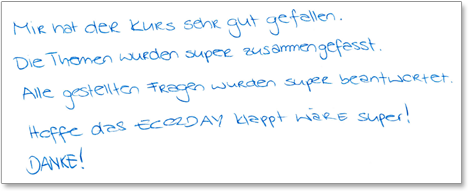 Mir hat der Kurs sehr gut gefallen.
Die Themen wurden super zusammengefasst.
Alle gestellten Fragen wurden super beantwortet.
Hoffe das ECO2DAY klappt wäre super!
DANKE!